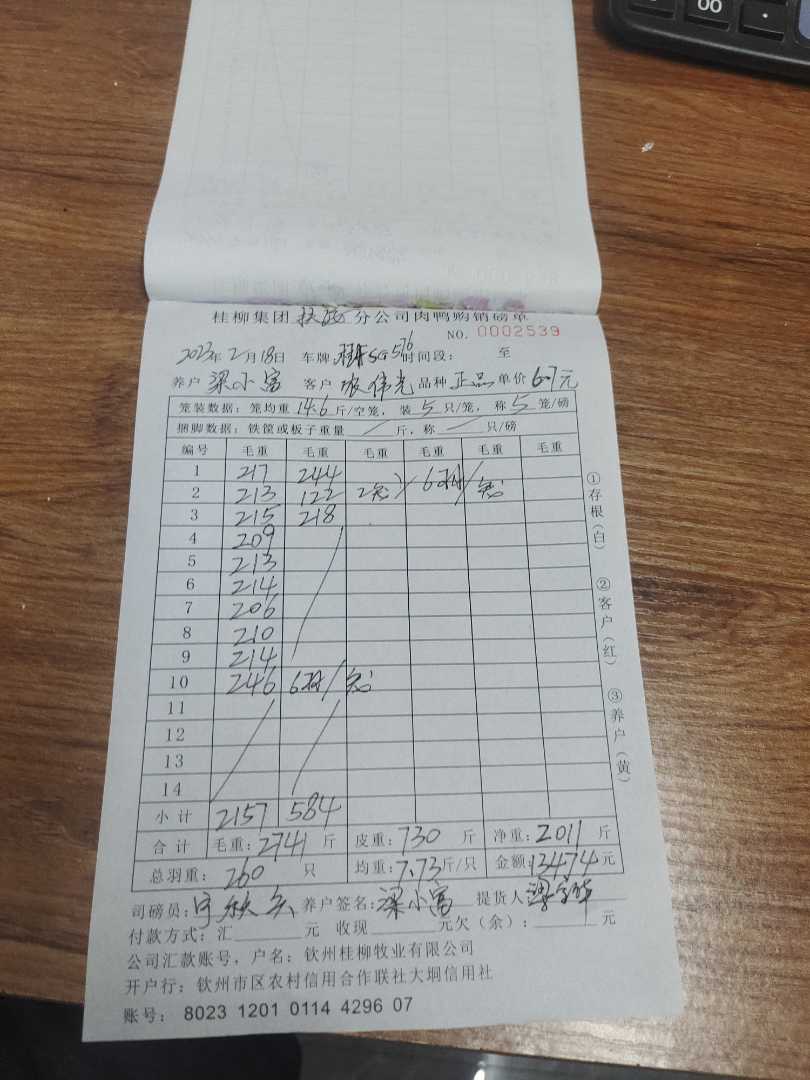 00
桂柳集团 分公司肉鸭购销磅单
NO. 0002539
2023年2月18日 车牌 576 时间段: 至
养户 梁小富 客户 伟光 品种 正品 单价 6.7元
笼装数据: 笼均重 14.6 斤/空笼, 装 5 只/笼, 称 5 笼/磅
捆脚数据: 铁筐或板子重量 / 斤, 称 / 只/磅
编号 毛重 毛重 毛重 毛重 毛重 毛重
1 217 244
2 213 122 2笼 6只/笼
3 215 218
4 209
5 213
6 214
7 206
8 210
9 214
10 246 6只/笼
11
12
13
14
小计 2157 584
合计 毛重: 2741 斤 皮重: 730 斤 净重: 2011 斤
总羽重: 260 只 均重: 7.73 斤/只 金额: 13474 元
司磅员: 养户签名: 梁小富 提货人
付款方式: 汇 元 收现 元欠(余): 元
公司汇款账号, 户名: 钦州桂柳牧业有限公司
开户行: 钦州市区农村信用合作联社大垌信用社
账号: 8023 1201 0114 4296 07
①存根(白)
②客户(红)
③养户(黄)